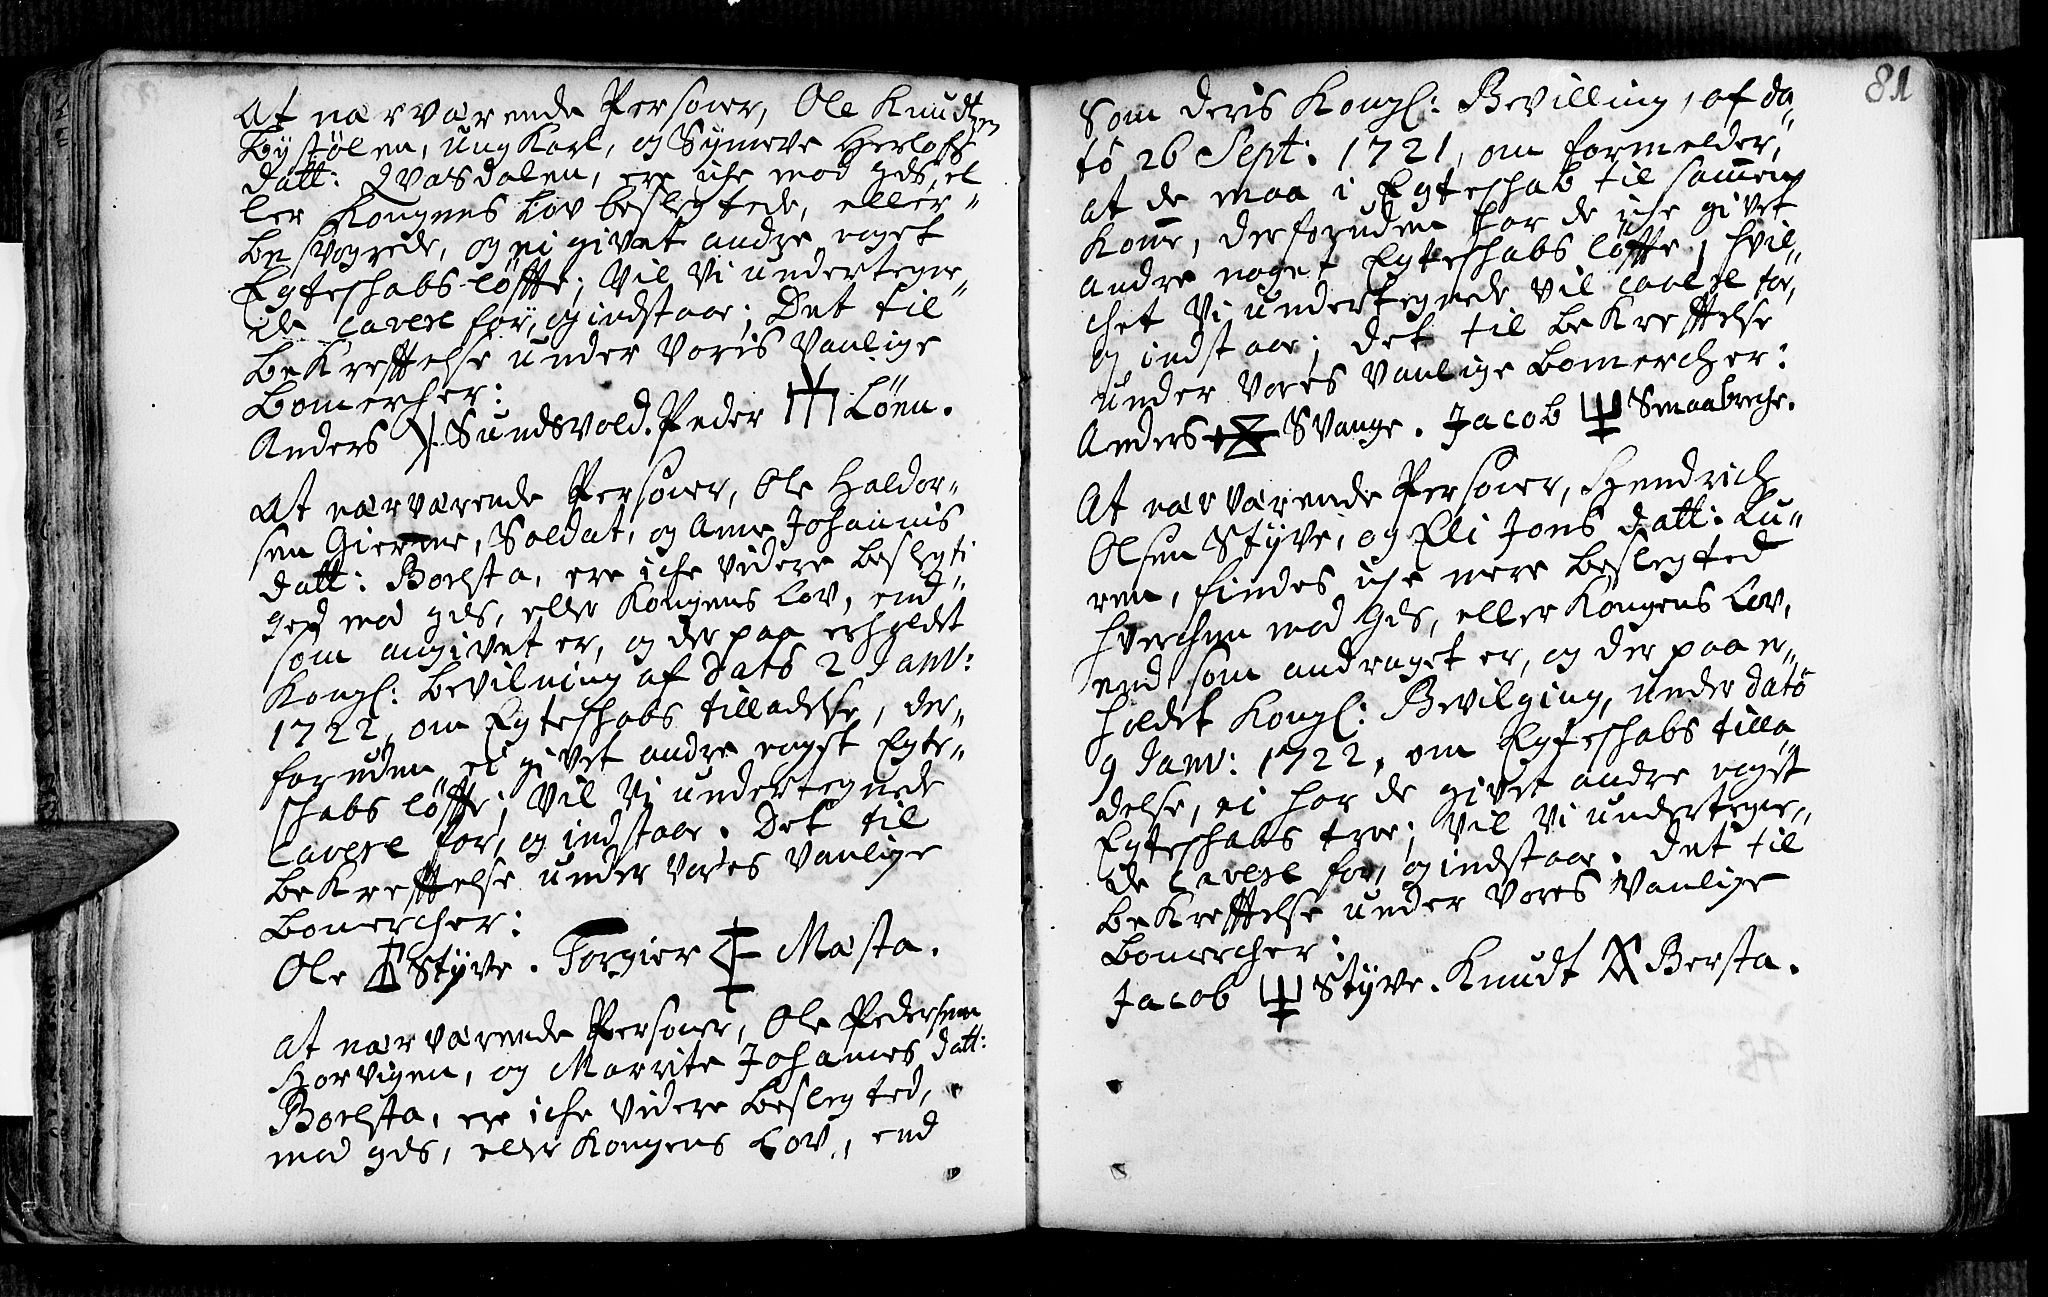 At nærværende Personer, Ole Knudtzen
Bystølen, ung Karl, og Synneve Herlofs
datt: Qvasdalen, ere iche mod gds, el
ler Kongens Lov beslegtede, eller
besvogrede, og ei givet andre noget
Egteschabs løffte; Vil Vi undertegne„
de cavere for, og indstaar; Det til
beKrefftelse under Voris Vanlige
Bomercher:
Anders Sundsvold. Peder Lönn.
At nærværende Personer, Ole Haldor„
sen Gierme, Soldat, og Anne Johannis
datt: Bochsta, ere iche videre beslegti
ged mod gds, eller Kongens Lov, end„
som angivet er, og der paa erholdet
Kongl: bevilning af Dato 2 Janv:
1722, om Egteschabs tilladelse, der„
foruden ei givet andre noget Egte„
schabs løffte; Vil Vi undertegnede
cavere for, og indstaar. Det til
beKrefftelse under Vores Vanlige
Bomercher:
Ole Styve. Torgier Mæsta.
At nærværende Personer, Ole Pedersen
Horvigen, og Marrite Johannes datt:
Bochsta, ere iche videre beslegted,
mod gds, eller Kongens Lov, end
81
Som deris Kongl: Bevilling, af da„
to 26 Sept: 1721, om formelder,
at de maa i Egteschab til sammen
Komme, derforuden har de iche givet
andre noget Egteschabs løffte; hvil„
chet Vi undertegnede vil cavere for,
og indstaar; det til beKrefftelse
under Vores Vanlige Bomercher:
Anders Svange. Jacob Smaabreche.
At nærværende Personer, Hendrich
Olsen Styve, og Eli Jons datt: Lu„
ren, findes iche mere beslegted
hverchen mod Gds, eller Kongens Lov,
end som andraget er, og der paa er„
holdet Kongl: Bevilging, under dato
9 Janv: 1722, om Egteschabs tilla
delse, ei har de givet andre noget
Egteschabs troe; Vil Vi undertegne„
de cavere for, og indstaar. det til
beKrefftelse under Vores Vanlige
Bomercher:
Jacob Styve. Knudt Bersta.